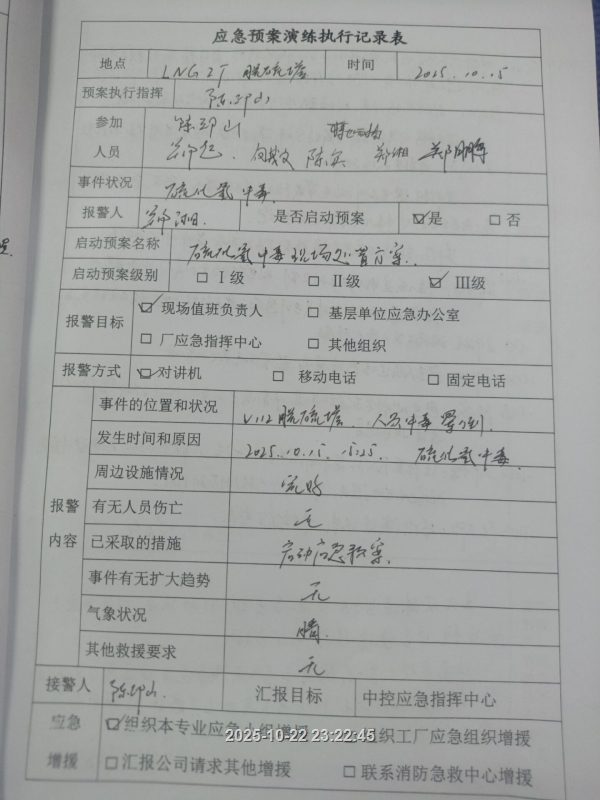 应急预案演练执行记录表
地点 LNG 2T 脱硫塔 时间 2025.10.15
预案执行指挥 陈印山
参加人员 陈印山
陈实 郑湘 郑鹏
事件状况 硫化氢中毒
报警人 是否启动预案 ☑是 □否
启动预案名称 硫化氢中毒现场处置方案
启动预案级别 □Ⅰ级 □Ⅱ级 ☑Ⅲ级
报警目标 ☑现场值班负责人 □基层单位应急办公室
□厂应急指挥中心 □其他组织
报警方式 ☑对讲机 □移动电话 □固定电话
报警内容
事件的位置和状况 V112脱硫塔 人员中毒晕倒.
发生时间和原因 2025.10.15. 15:25. 硫化氢中毒.
周边设施情况 完好
有无人员伤亡 无
已采取的措施 启动应急预案.
事件有无扩大趋势 无
气象状况 晴.
其他救援要求 无
接警人 陈印山. 汇报目标 中控应急指挥中心
应急增援 ☑组织本专业应急小组增援 组织工厂应急组织增援
□汇报公司请求其他增援 □联系消防急救中心增援
2025-10-22 23:22:45